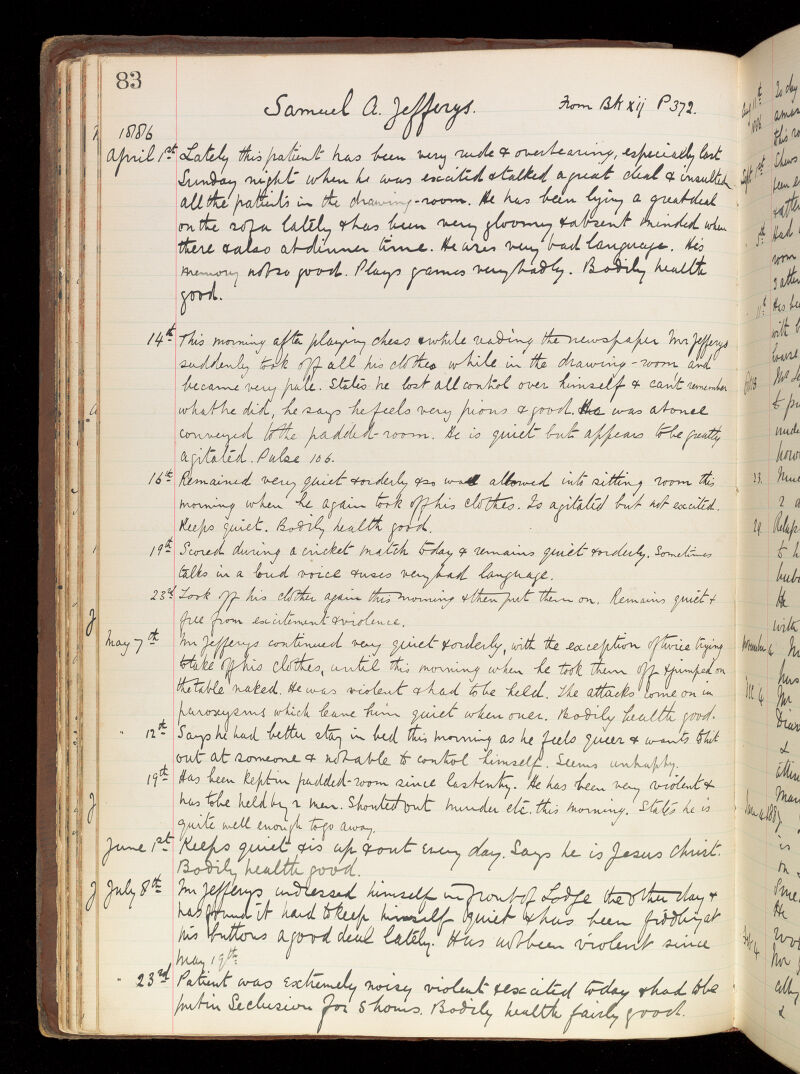 83
Samuel A. Jefferys. From Bk xij P 372.
1886
April 1st Lately this patient has been very rude & overbearing, especially last
Sunday night when he was excited & talked a great deal & insulted
all the patients in the drawing-room. He has been lying a great deal
on the sofa lately & has been very gloomy & absent minded when
there & also at dinner time. He uses very bad language. His
memory not so good. Plays games very badly. Bodily health
good.
14th This morning after playing chess & while reading the newspaper Mr Jefferys
suddenly took off all his clothes while in the drawing-room and
became very pale. States he lost all control over himself & can't remember
what he did, he says he feels very pious & good. He was at once
conveyed to the padded-room. He is quiet but appears to be greatly
agitated. Pulse 106.
16th Remained very quiet & orderly & so was allowed into sitting room this
morning when he again took off his clothes. Is agitated but not excited.
Keeps quiet. Bodily health good.
19th Scored during a cricket match today & remains quiet & orderly. Sometimes
talks in a loud voice & uses very bad language.
23rd Took off his clothes again this morning & then put them on. Remains quiet &
free from excitement & violence.
May 7th Mr Jefferys continued very quiet & orderly, with the exception of twice trying
to take off his clothes, until this morning when he took them off & jumped on
the table naked. He was violent & had to be held. The attacks come on in
paroxysms which leave him quiet when over. Bodily health good.
" 12th Says he had better stay in bed this morning as he feels queer & wants to hit
out at someone & not able to control himself. Seems unhappy.
19th Has been kept in padded-room since last entry. He has been very violent &
has to be held by 2 men. Shouted out murder etc. this morning. States he is
quite well enough to go away.
June 1st Keeps quiet & is up & out every day. Says he is Jesus Christ.
Bodily health good.
July 8th Mr Jefferys undressed himself in front of Lodge the other day &
has found it hard to keep himself quiet & has been fiddling at
his buttons a good deal lately. Has not been violent since
May 19th.
" 23rd Patient was extremely noisy violent & excited today & had to be
put in Seclusion for 5 hours. Bodily health fairly good.